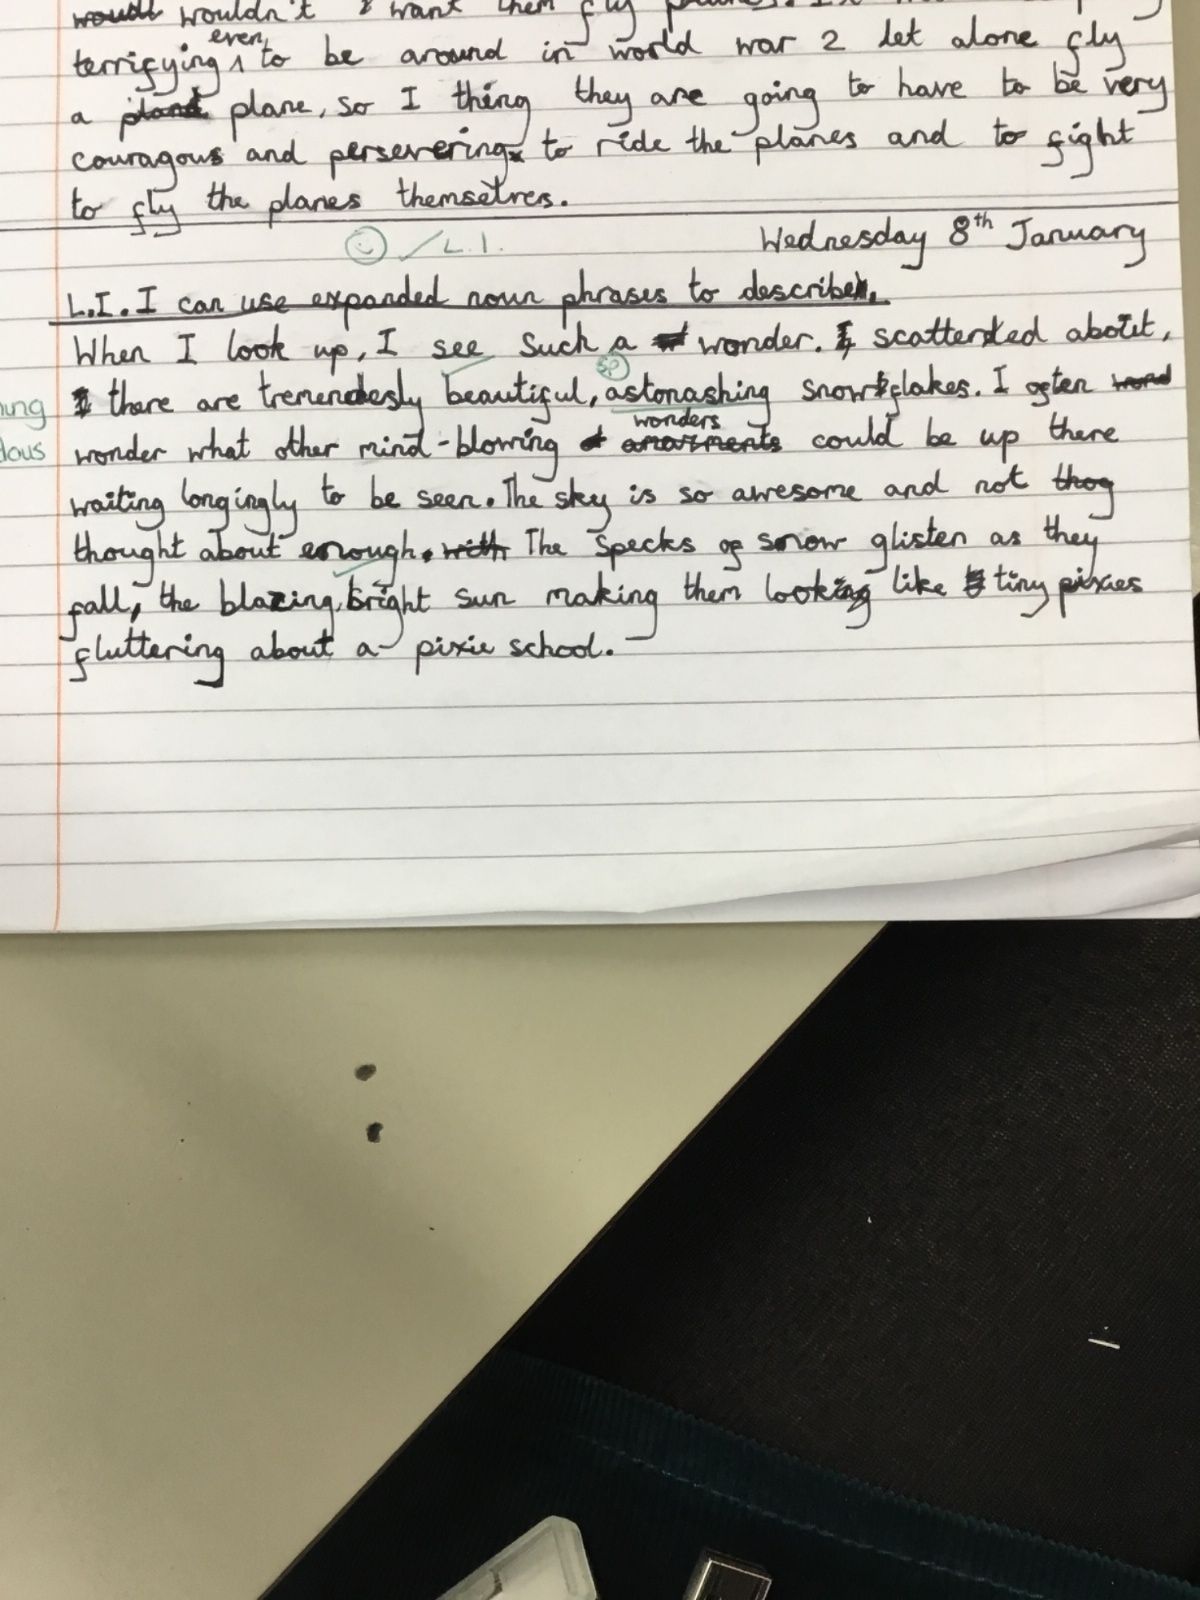 wouldn't I want them fly planes.
terrifying even to be around in world war 2 let alone fly
a plane, so I thing they are going to have to be very
couragous and persevering to ride the planes and to fight
to fly the planes themselves.
L.I.
Wednesday 8th January
L.I. I can use expanded noun phrases to describe.
When I look up, I see such a wonder. scatterded about,
sp
there are tremendesly beautiful, astonashing snowflakes. I often
wonder what other mind-blowing wonders could be up there
waiting longingly to be seen. The sky is so awesome and not
thought about enough. The specks of snow glisten as they
fall, the blazing, bright sun making them look like tiny pixies
fluttering about a pixie school.